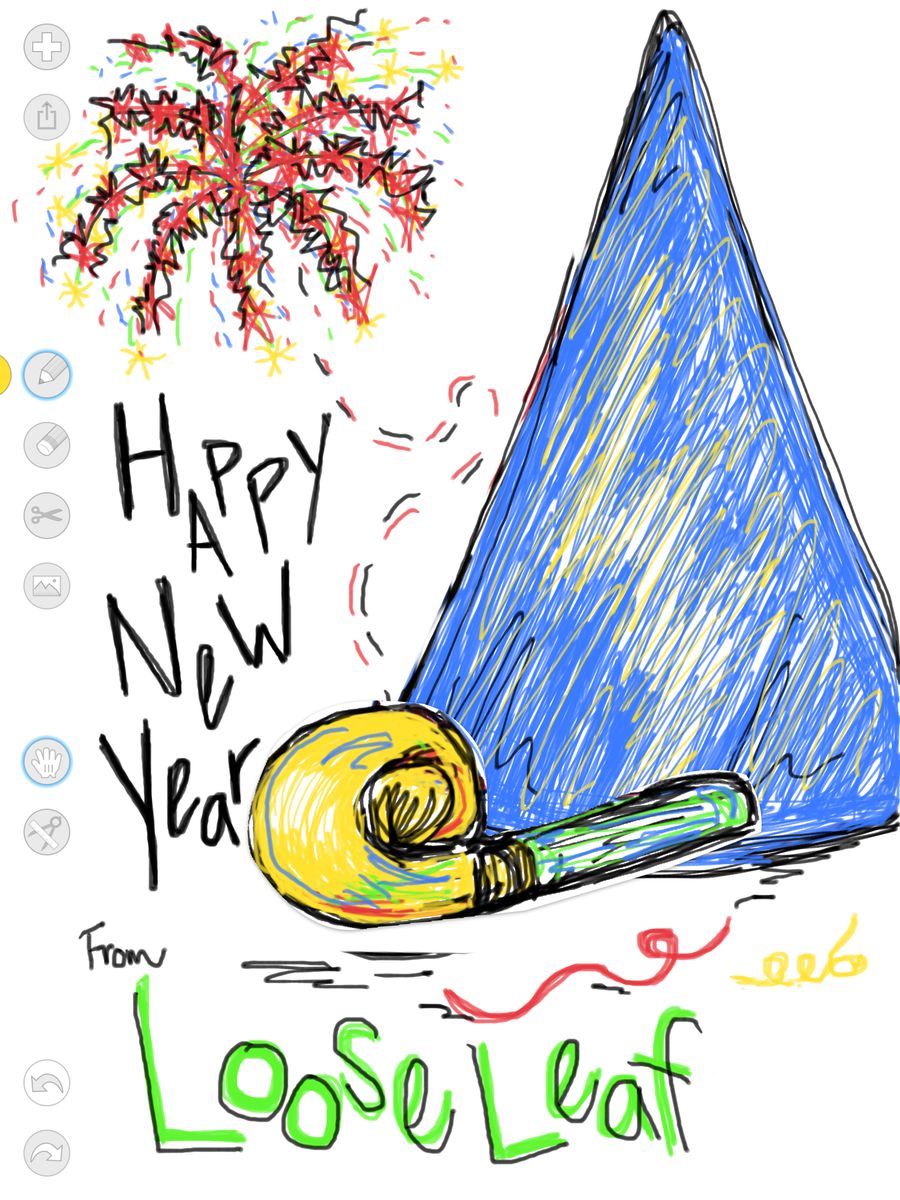 Happy
New
Year
From
Loose Leaf